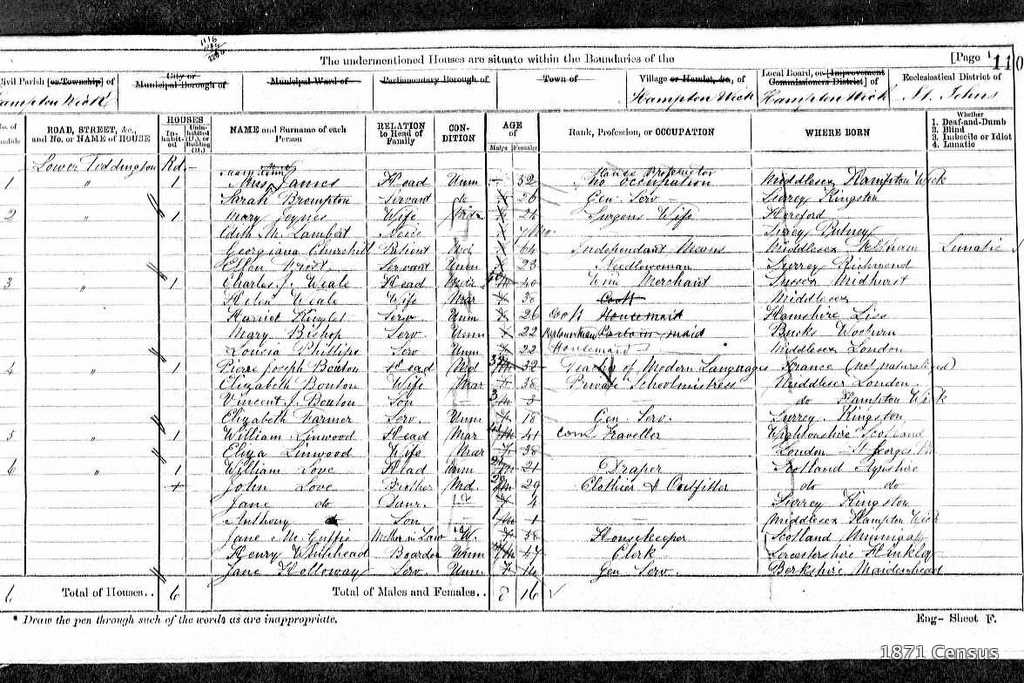 The undermentioned Houses are situate within the Boundaries of the [Page 110
Civil Parish [or Township] of City or Municipal Borough of Municipal Ward of Parliamentary Borough of Town of Village or Hamlet, &c., of Local Board, or [Improvement Commissioners District] of Ecclesiastical District of
Hampton Wick Hampton Wick Hampton Wick St. Johns
No. of Schedule ROAD, STREET, &c., and No. or NAME of HOUSE HOUSES Inhabited Uninhabited (U.), or Building (B.) NAME and Surname of each Person RELATION to Head of Family CONDITION AGE of Males Females Rank, Profession, or OCCUPATION WHERE BORN Whether 1. Deaf-and-Dumb 2. Blind 3. Imbecile or Idiot 4. Lunatic
Lower Teddington Rd.
House Proprietor
1 " 1 James Head Unm 52 No occupation Middlesex Hampton Wick
Sarah Brompton Servant 26 Gen. Serv. Surrey Kingston
2 " 1 Mary Jeynes Wife 24 Surgeons Wife Hereford
Edith M. Lambert Neice 7 Mo. Surrey Putney
Georgiana Churchill Patient 64 Independant Means Middlesex Lunatic
Ellen Servant Unm 23 Needlewoman Surrey Richmond
3 " 1 Charles J. Weale Head 40 Wine Merchant Sussex Midhurst
Helen Weale Wife Mar 30 Cook Middlesex
Harriet Serv. Unm 26 Cook Housemaid Hampshire Liss
Mary Bishop Serv. Unm 22 Parlour maid Bucks Wooburn
Louisa Phillips Serv Unm 22 Housemaid Middlesex London
4 " 1 Pierre Joseph Bouton Head Md 32 Teacher of Modern Languages France (not naturalised)
Elizabeth Bouton Wife Mar 38 Private Schoolmistress Middlesex London
Vincent J. Bouton Son 3 do Hampton Wick
Elizabeth Farmer Serv. Unm 18 Gen. Serv. Surrey Kingston
5 " 1 William Linwood Head Mar 41 Com Traveller Wightonshire Scotland
Eliza Linwood Wife Mar 38 London St Georges
6 " 1 William Love Head Unm 21 Draper Scotland Ayrshire
John Love Brother Md. 29 Clothier & Outfitter do do
Jane do Daur. 4 Surrey Kingston
Anthony Son 1 Middlesex Hampton Wick
Jane Mc Guffie Mother in Law W. 58 Housekeeper Scotland
Henry Whitehead Boarder Unm 47 Clerk Leicestershire Hinkley
Jane Holloway Serv. Unm 14 Gen Serv. Berkshire Maidenhead
6 Total of Houses.. 6 Total of Males and Females.. 8 16
* Draw the pen through such of the words as are inappropriate. Eng- Sheet F.
1871 Census